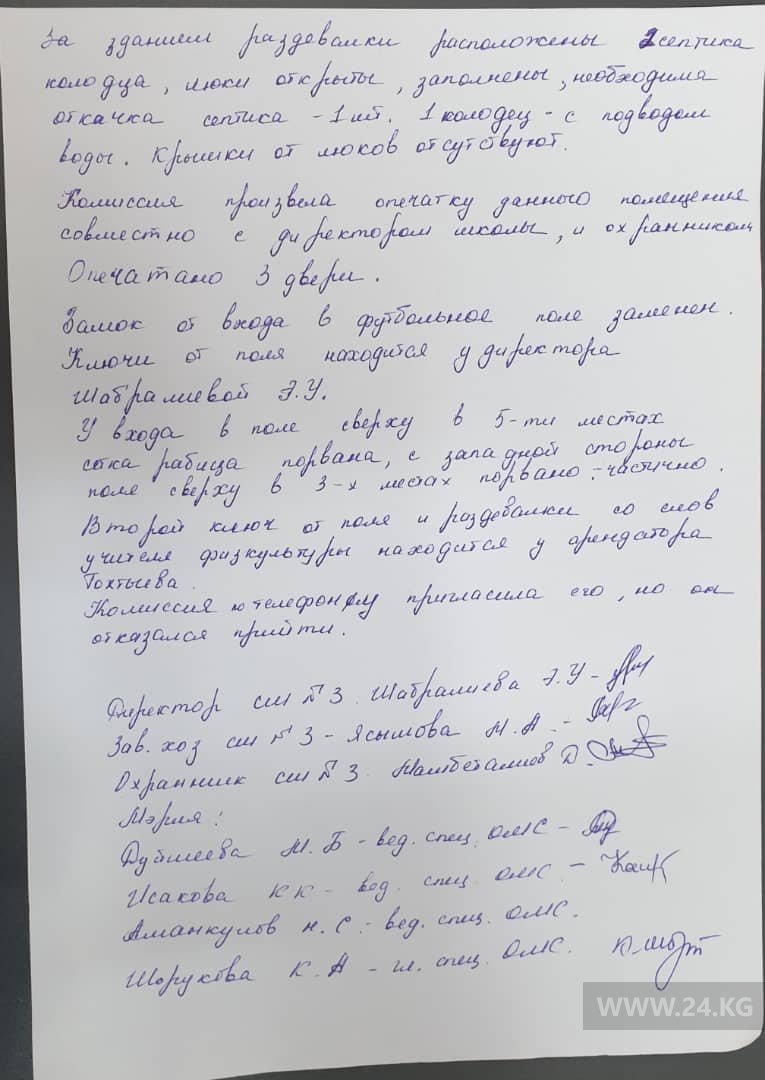 За зданием раздевалки расположены 2 септика
колодца, люки открыты, заполнены, необходима
откачка септика - 1 шт. 1 колодец - с подводом
воды. Крышки от люков отсутствуют.
Комиссия произвела опечатку данного помещения
совместно с директором школы, и охранником
Опечатано 3 двери.
Замок от входа в футбольное поле заменен.
Ключи от поля находится у директора
Шабралиевой Э.У.
У входа в поле сверху в 5-ти местах
сетка рабица порвана, с западной стороны
поле сверху в 3-х местах порвано частично.
Второй ключ от поля и раздевалки со слов
учителя физкультуры находится у арендатора
Тохтыева.
Комиссия по телефону пригласила его, но он
отказался прийти.
Директор сш №3. Шабралиева Э.У -
Зав. хоз сш №3 - Ясымова М.А. -
Охранник сш №3. Мамбеталиев Д.
Мэрия:
Дуйшеева М.Б - вед. спец. ОМС -
Исакова КК - вед. спец. ОМС -
Аманкулов Н.С. - вед. спец. ОМС.
Шорукова К.А - гл. спец. ОМС.
WWW.24.KG